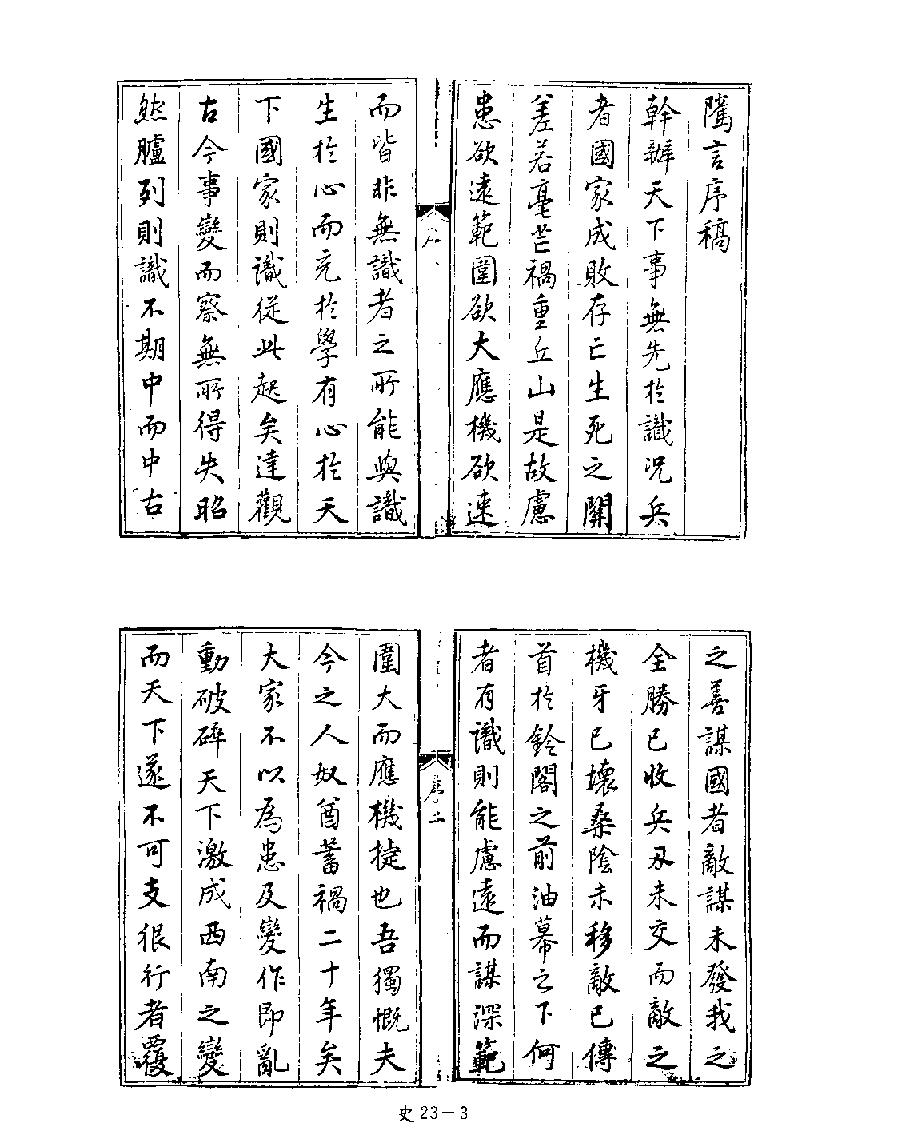 隲言序稿
幹辦天下事無先於識况兵
者國家成敗存亡生死之關
差若毫芒禍重丘山是故慮
患欲遠範圍欲大應機欲速
而皆非無識者之所能與識
生於心而充於學有心於天
下國家則識從此起矣達觀
古今事變而察無所得失昭
然臚列則識不期中而中古
之善謀國者敵謀未發我之
全勝已收兵刃未交而敵之
機牙已壞桑陰未移敵已傳
首於鈴閣之前油幕之下何
者有識則能慮遠而謀深範
序二
圍大而應機捷也吾獨慨夫
今之人奴酋蓄禍二十年矣
大家不以為患及變作即亂
動破碎天下激成西南之變
而天下遂不可支很行者覆
史23－3